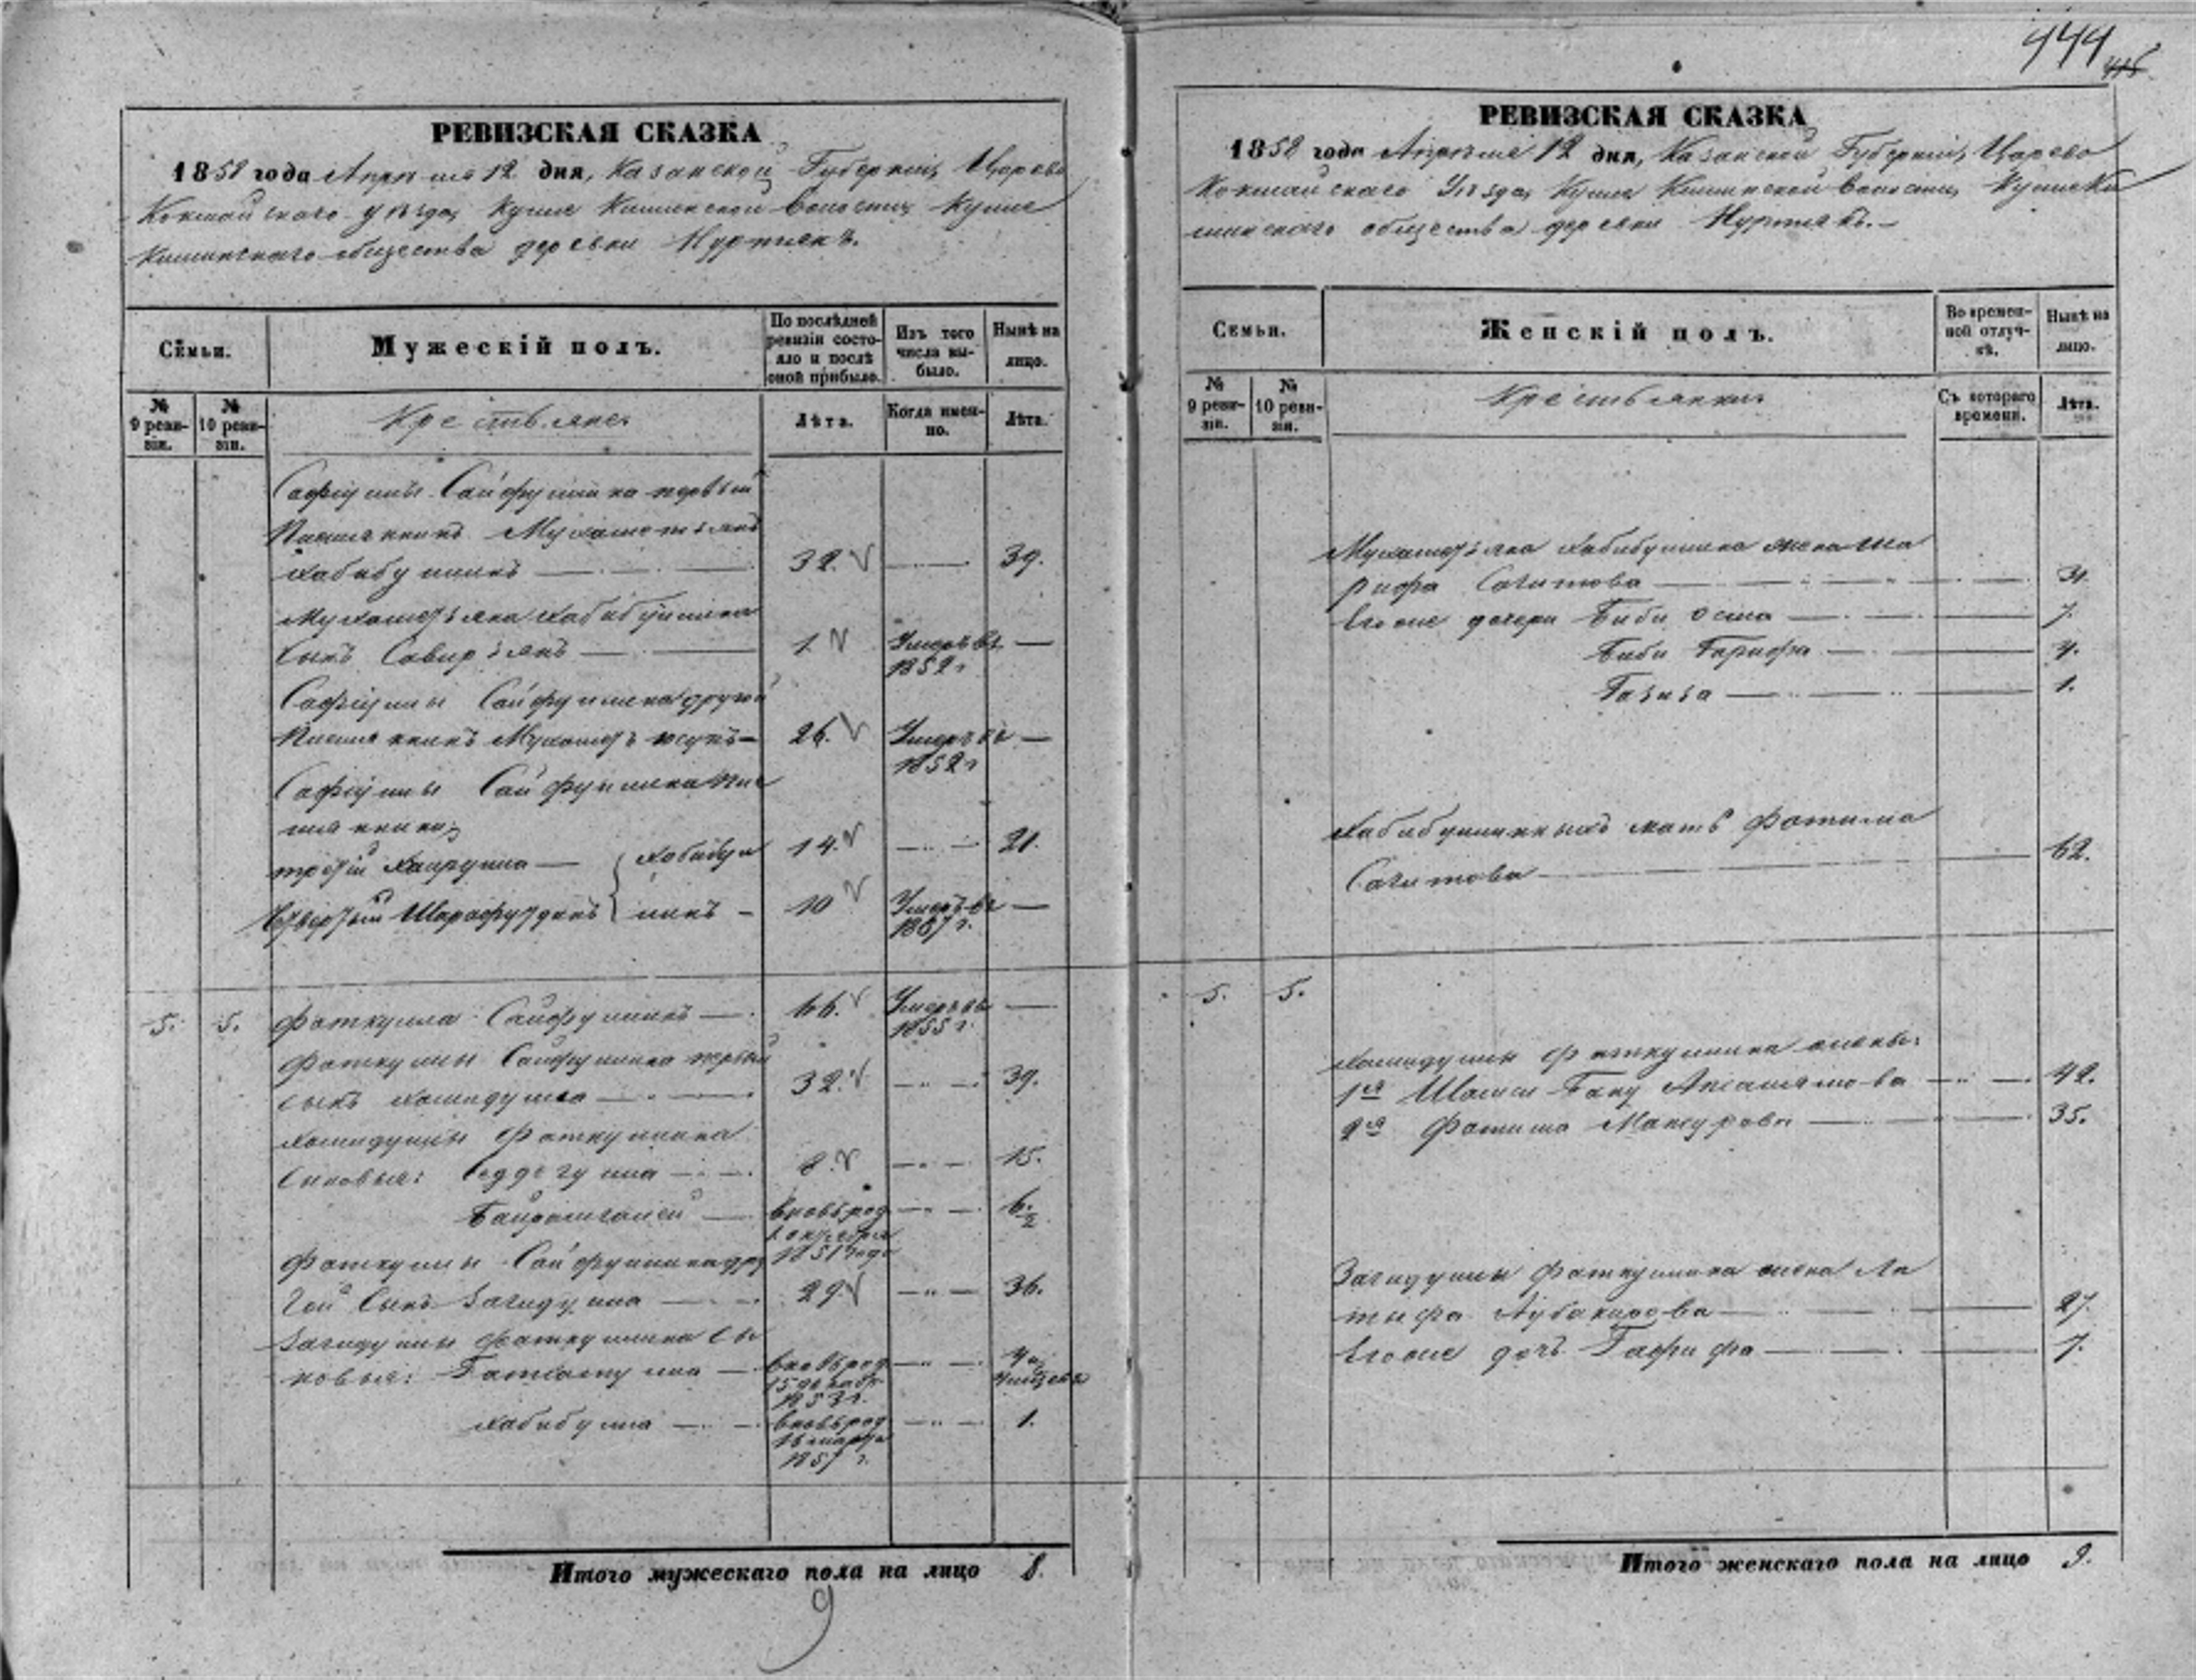 444
РЕВИЗСКАЯ СКАЗКА
1858 года Апреля 12 дня, Казанской Губерніи, Царево
Кокшайскаго уѣзда, Кушке Кишинской волости Кушке
Кишинскаго общества деревни Нурмиякъ.
Семьи.
Мужескій полъ.
По послѣдней ревизіи состояло и послѣ оной прибыло.
Изъ того числа выбыло.
Нынѣ на лицо.
№ 9 ревизіи.
№ 10 ревизіи.
Крестьяне
Лѣта.
Когда именно.
Лѣта.
Сафіуллы Сайфуллина первый
племянникъ Мухаметзянъ
Хабибуллинъ 32. 39.
Мухаметзяна Хабибуллина
сынъ Савирзянъ 1. Умеръ въ 1852 г.
Сафіуллы Сайфуллина другой
племянникъ 26. Умеръ въ 1852 г.
Сафіуллы Сайфуллина пле
мянники;
третій Хайрулла Хабибул 14. 21.
Четвертый Шарафутдинъ линъ 10 Умеръ въ г.
5. 5. Фаткулла Сайфуллинъ 66. Умеръ въ 1855 г.
Фаткуллы Сайфуллина первый
сынъ Хамидулла 32. 39.
Хамидуллы Фаткуллина
сыновья: 8. 15.
вновь род 1851 года 6 1/2
Фаткуллы Сайфуллина дру
гой сынъ Загидулла 29. 36.
Загидуллы Фаткуллина сы
новья: вновь род 15 декабр 1853 г. 4 и 4 месяца
Хабибулла вновь род 16 марта 1857 г. 1.
Итого мужескаго пола на лицо 8.
9
РЕВИЗСКАЯ СКАЗКА
1858 года Апреля 12 дня, Казанской Губерніи, Царево
Кокшайскаго Уѣзда, Кушке Кишинской волости, Кушкеки
шинскаго общества деревни Нурмиякъ.
Семьи.
Женскій полъ.
Во временной отлучкѣ.
Нынѣ на лицо.
№ 9 ревизіи.
№ 10 ревизіи.
Крестьянки
Съ котораго времени.
Лѣта.
Мухаметзяна Хабибуллина жена Ша
рифа Сагитова 31.
Его же дочери Биби Осма 7.
Биби Гарифа 4.
Газиза 1.
Хабибуллиныхъ мать Фатима
Сагитова 62.
5. 5.
Хамидуллы Фаткуллина жены:
1я Шамси Бану 42.
2я Фатима Мансурова 35.
Загидуллы Фаткуллина жена Ла
тыфа Абубакирова 27.
Его же дочь Гафифа 7.
Итого женскаго пола на лицо 9.